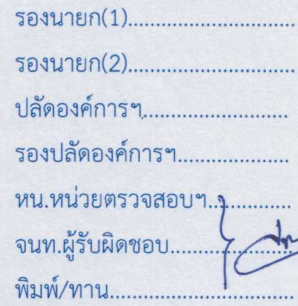 รองนายก(1)..............................
รองนายก(2)..............................
ปลัดองค์การฯ..........................
รองปลัดองค์การฯ....................
หน.หน่วยตรวจสอบฯ...............
จนท.ผู้รับผิดชอบ.....................
พิมพ์/ทาน.................................